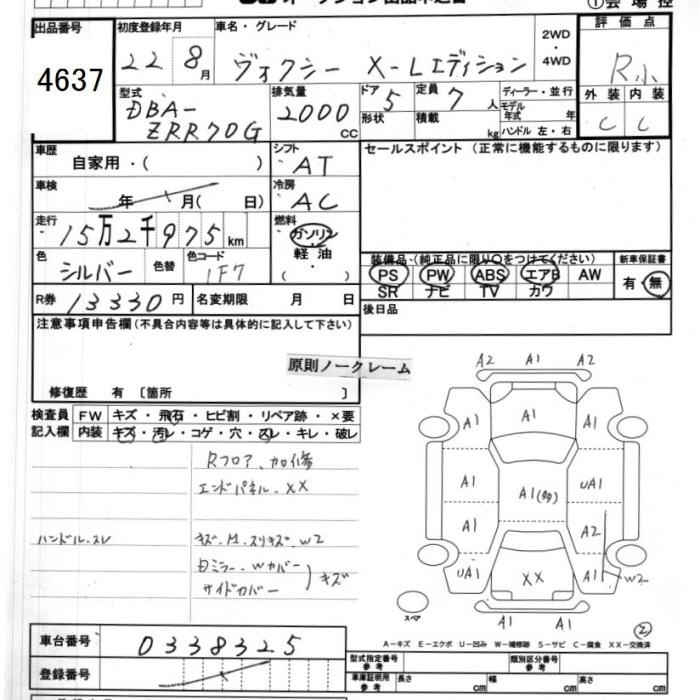 ①会場控
出品番号
4637
初度登録年月
22 8月
車名・グレード
ヴォクシー X-Lエディション
2WD
・
4WD
評価点
R小
外装 内装
C C
型式
DBA-
ZRR70G
排気量
2000
CC
ドア 5
形状
定員 7 人
積載 kg
ディーラー・並行
モデル
年式 年
ハンドル 左・右
車歴
自家用・( )
シフト
AT
車検
年 月( 日)
冷房
AC
走行
15万2千975km
燃料
ガソリン
・
軽油
( ・ )
色
シルバー
色替
色コード
1F7
R券 13330円
名変期限 月 日
セールスポイント (正常に機能するものに限ります)
装備品・(純正品に限り○をつけてください)
PS PW ABS エアB AW
SR ナビ TV カワ
新車保証書
有・無
後日品
注意事項申告欄(不具合内容等は具体的に記入して下さい)
原則ノークレーム
修復歴 有 〔箇所 〕
検査員
記入欄
FW キズ・飛石・ヒビ割・リペア跡・×要
内装 キズ・汚レ・コゲ・穴・スレ・キレ・破レ
Rフロア、加修
エンドパネル、XX
ハンドル、スレ
キズ、M、スリキズ、W2
Dミラー、Wカバー
サイドカバー
キズ
A2 A1 A2
A1 A1 A1
A1 A1(多) UA1
A1 A2
UA1 XX A1 W2
A1 A1
スペア
②
A-キズ E-エクボ U-凹み W-補修跡 S-サビ C-腐食 XX-交換済
車台番号
0338325
登録番号
型式指定番号
参考
類別区分番号
参考
車庫証明用
参考
長さ cm 幅 cm 高さ cm